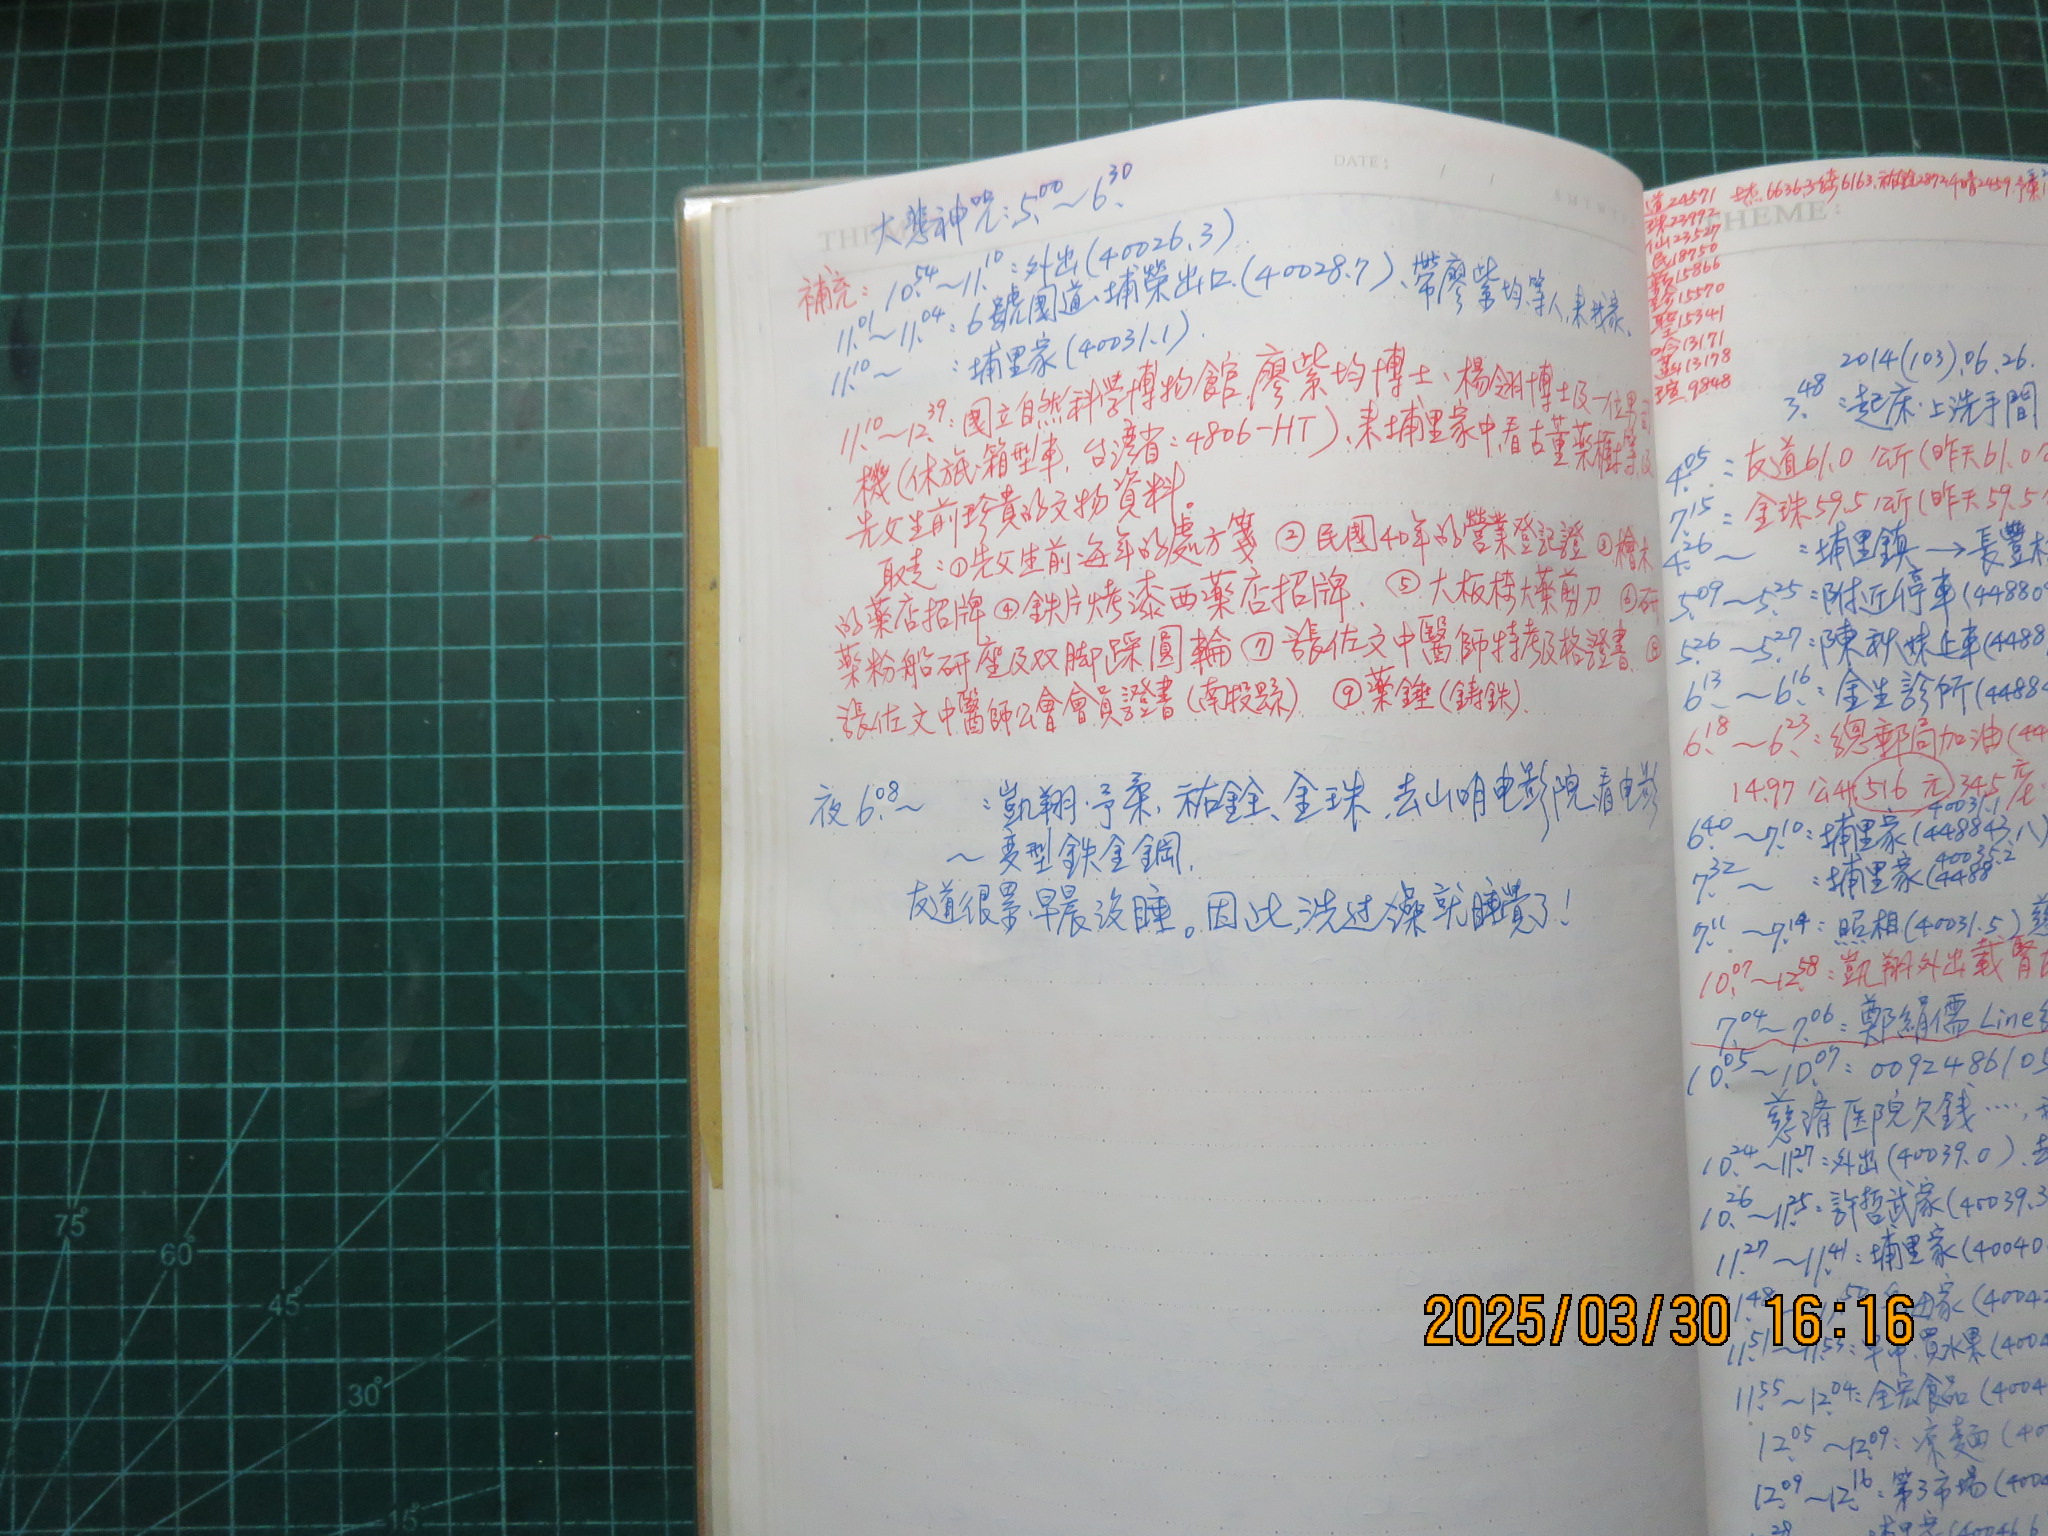 DATE: / /
THEME:
大悲神咒:5.00~6.30
補充: 10.54~11.10:外出(40026.3).
11.01~11.04:6號國道、埔榮出口(40028.7)、帶廖紫均等人,來我家.
11.10~ :埔里家(40031.1).
11.10~12.39:國立自然科學博物館,廖紫均博士、楊翎博士及一位男司
機(休旅箱型車,台灣省:4806-HT),來埔里家中,看古董藥櫃等及
先父生前珍貴的文物資料。
取走:①先父生前每年的處方箋 ②民國40年的營業登記證 ③檜木
的藥店招牌 ④鉄片烤漆西藥店招牌. ⑤大板橋大藥剪刀 ⑥研
藥粉船研座及双脚踩圓輪 ⑦張佐文中醫師特考及格證書. ⑧
張佐文中醫師公會會員證書(南投縣) ⑨藥錘(鋳鉄).
夜6.08~ :凱翔.予柔.祐銓、金珠.去山明电影院,看电影
~变型鉄金鋼.
友道很累,早晨沒睡。因此,洗过澡就睡覺了!
道24571
珠23992
仙23527
民18750
15866
15570
15341
13171
13178
瑄9848
THEME:
2014(103).06.26.
3.48:起床.上洗手間
4.05:友道61.0公斤(昨天61.0
7.15:金珠59.5公斤(昨天59.5
4.26~ :埔里鎮→長豐
5.09~5.25:附近停車(44880
5.26~5.27:陳秋妹上車(4488
6.13~6.16:金生診所(4488
6.18~6.23:總郵局加油(44
14.97公升 516元 34.5
40031.1
6.40~7.10:埔里家(448843.八)
40035.2
7.32~ :埔里家(4488
7.11~7.14:照相(40031.5)
10.07~12.58:凱翔外出載
7.04~7.06:鄭絹儒Line
10.05~10.07:0092486105
慈濟医院欠錢....,
10.24~11.27:外出(40039.0).
10.26~11.25:許哲武家(40039.3
11.27~11.41:埔里家(40040.
田家(4004
11.51~11.53: 買水果(4004
11.55~12.04:全宏食品(4004
12.05~12.09:凉麵(40
12.09~12.16:第3市場(400
2025/03/30 16:16
75°
60°
45°
30°
15°